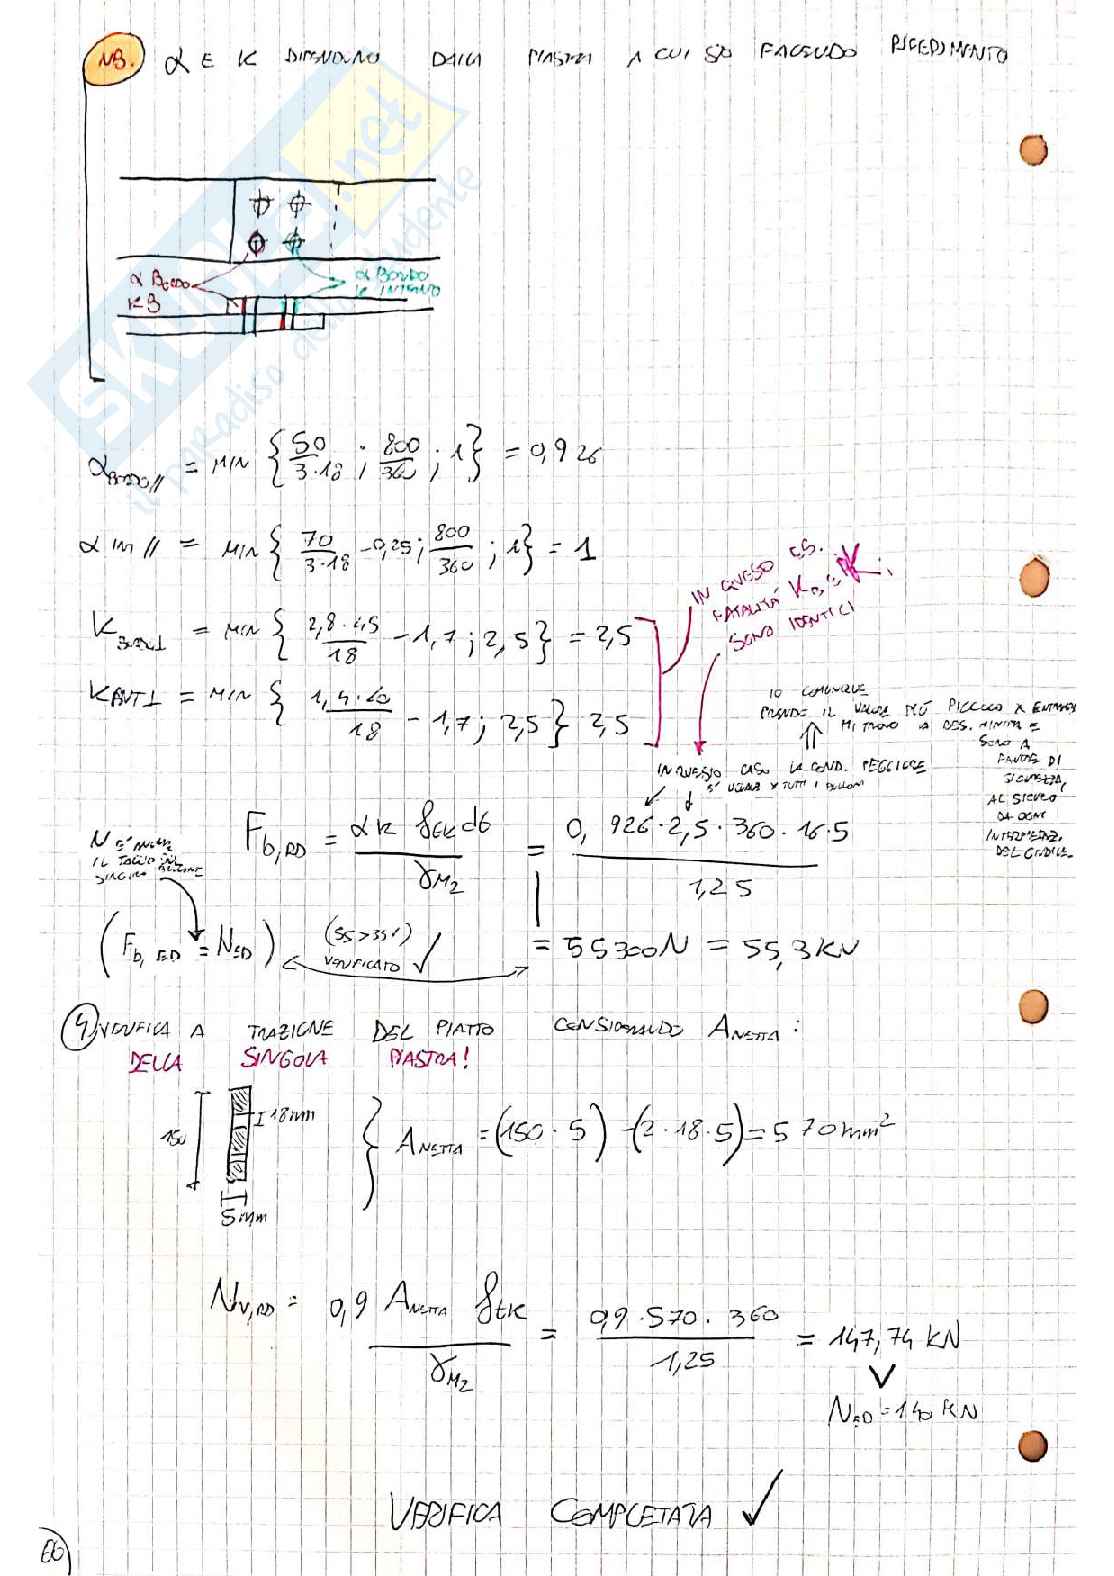 NB. α E K DIPENDONO DALLA PIASTRA A CUI STO FACENDO RIFERIMENTO
α BORDO
K B
α BORDO
K INTERNO
SKUOLA.net
il paradiso dello studente
α BORDO// = MIN { 50/3·18 ; 800/360 ; 1 } = 0,926
α IN // = MIN { 70/3·18 - 0,25 ; 800/360 ; 1 } = 1
K BORD⊥ = MIN { 2,8·45/18 - 1,7 ; 2,5 } = 2,5
K INT⊥ = MIN { 1,4·60/18 - 1,7 ; 2,5 } 2,5
IN QUESO ES.
FATALITÀ K B, E K I
SONO IDENTICI
IO COMUNQUE
PRENDO IL VALORE PIÙ PICCOLO X ENTRAMBI
MI TROVO A RES. MINIMA =
SONO A
FAVORE DI
SICUREZZA,
AL SICURO
DA OGNI
DEL CODICE.
IN QUESTO CASO LA COND. PEGGIORE
SI USERÀ X TUTTI I BULLONI
N È ANCHE
IL TAGLIO SUL
SINGOLO BULLONE
F b,RD = α k f tk d t / γ M2 = 0, 926·2,5·360·16·5 / 1,25
(F b, ED = N SD) (55>35!) VERIFICATO ✓ = 55300N = 55,3 KN
4) VERIFICA A TRAZIONE DEL PIATTO CONSIDERANDO A NETTA :
DELLA SINGOLA PIASTRA!
150
18mm
5mm
A NETTA = (150·5) - (2·18·5) = 570 mm²
N V,RD = 0,9 A NETTA f tk / γ M2 = 0,9·570·360 / 1,25 = 147,74 KN
V
N SD = 140 KN
VERIFICA COMPLETATA ✓
66